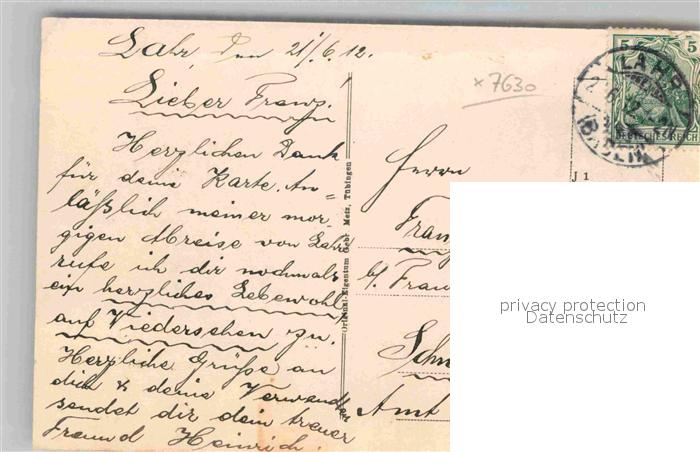 Lahr, den 21./6.12.
Lieber Franz!
Herzlichen Dank
für deine Karte. An=
läßlich meiner mor-
gigen Abreise von Lahr
rufe ich dir nochmals
ein herzliches Lebewohl
auf Wiedersehen zu.
Herzliche Grüße an
dich & deine Verwandten
sendet dir dein treuer
Freund Heinrich.
x7630
5 5
DEUTSCHES REICH
LAHR
(BADEN)
J 1
Original-Eigentum Gebr. Metz, Tübingen
Herrn
Fran
bz. Fran
Sch
Amt
privacy protection
Datenschutz